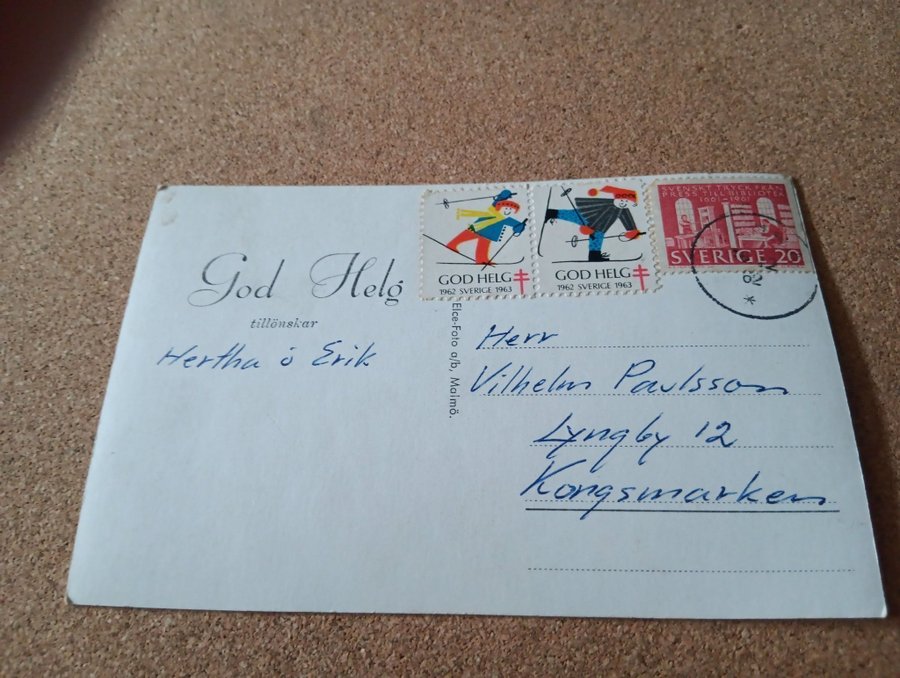 God Helg
tillönskar
Hertha o Erik
GOD HELG
1962 SVERIGE 1963
GOD HELG
1962 SVERIGE 1963
SVENSKT TRYCK FRÅN
PRESS TILL BIBLIOTEK
1661-1961
SVERIGE 20
Elce-Foto a/b, Malmö.
Herr
Vilhelm Paulsson
Lyngby 12
Kongsmarken